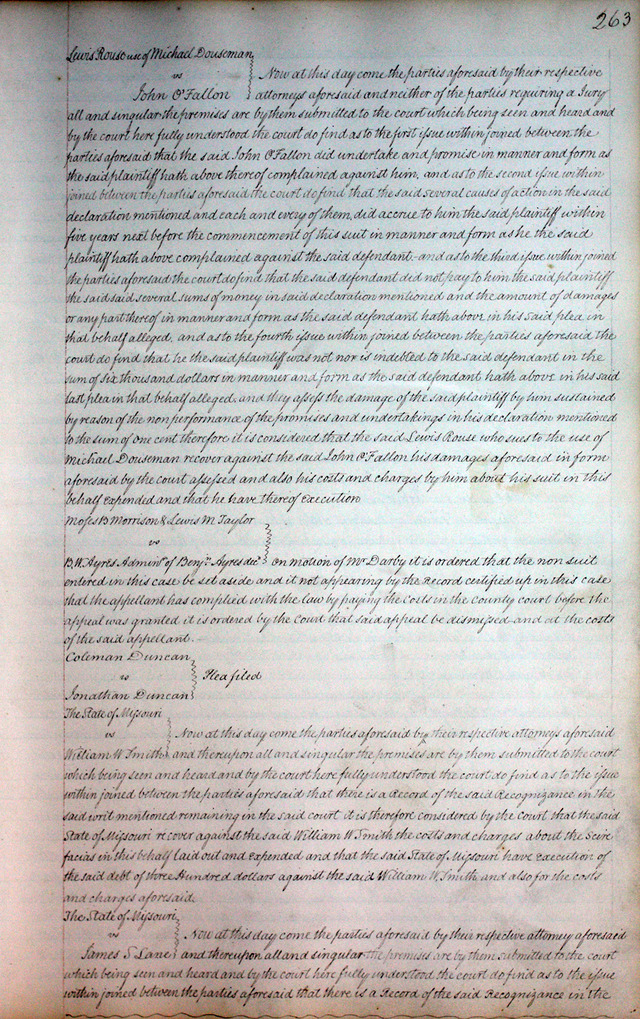 263
Lewis Rouse use of Michael Douseman
vs Now at this day come the parties aforesaid by their respective
John O'Fallon attorneys aforesaid and neither of the parties requiring a Jury
all and singular the premises are by them submitted to the court which being seen and heard and
by the court here fully understood the court do find as to the first issue within joined between the
parties aforesaid that the said John O'Fallon did undertake and promise in manner and form as
the said plaintiff hath above thereof complained against him, and as to the second issue within
joined between the parties aforesaid the court do find that the said several causes of action in the said
declaration mentioned and each and every of them, did accrue to him the said plaintiff within
five years next before the commencement of this suit in manner and form as he the said
plaintiff hath above complained against the said defendant - and as to the third issue within joined
the parties aforesaid the court do find that the said defendant did not pay to him the said plaintiff
the said said several sums of money in said declaration mentioned and the amount of damages
or any part thereof in manner and form as the said defendant hath above in his said plea in
that behalf alleged, and as to the fourth issue within joined between the parties aforesaid the
court do find that he the said plaintiff was not nor is indebted to the said defendant in the
sum of six thousand dollars in manner and form as the said defendant hath above in his said
last plea in that behalf alleged, and they assess the damage of the said plaintiff by him sustained
by reason of the non performance of the promises and undertakings in his declaration mentioned
to the sum of one cent therefore it is considered that the said Lewis Rouse who sues to the use of
Michael Douseman recover against the said John O'Fallon his damages aforesaid in form
aforesaid by the court assessed and also his costs and charges by him about his suit in this
behalf expended and that he have thereof execution
Moses B Morrison & Lewis M Taylor
vs
B. W. Ayres Adminr of Benjn Ayres decd on motion of Mr Darby it is ordered that the non suit
entered in this case be set aside and it not appearing by the Record certified up in this case
that the appellant has complied with the law by paying the costs in the county court before the
appeal was granted it is ordered by the Court that said appeal be dismissed and at the costs
of the said appellant.
Coleman Duncan
vs Plea filed
Jonathan Duncan
The State of Missouri
vs Now at this day come the parties aforesaid by their respective attorneys aforesaid
William W Smith and thereupon all and singular the premises are by them submitted to the court
which being seen and heard and by the court here fully understood the court do find as to the issue
within joined between the parties aforesaid that there is a Record of the said Recognizance in the
said writ mentioned remaining in the said court it is therefore considered by the Court that the said
State of Missouri recover against the said William W Smith the costs and charges about the Scire
facias in this behalf laid out and expended and that the said State of Missouri have Execution of
the said debt of three Hundred dollars against the said William W. Smith and also for the costs
and charges aforesaid.
The State of Missouri
vs Now at this day come the parties aforesaid by their respective attorney aforesaid
James S Lane and thereupon all and singular the premises are by them submitted to the court
which being seen and heard and by the court here fully understood the court do find as to the issue
within joined between the parties aforesaid that there is a Record of the said Recognizance in the